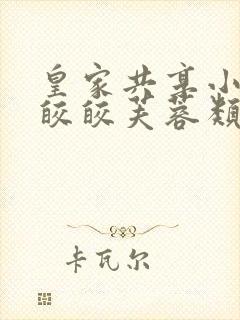 皇家共享小
皎皎芙蓉颓
卡瓦尔